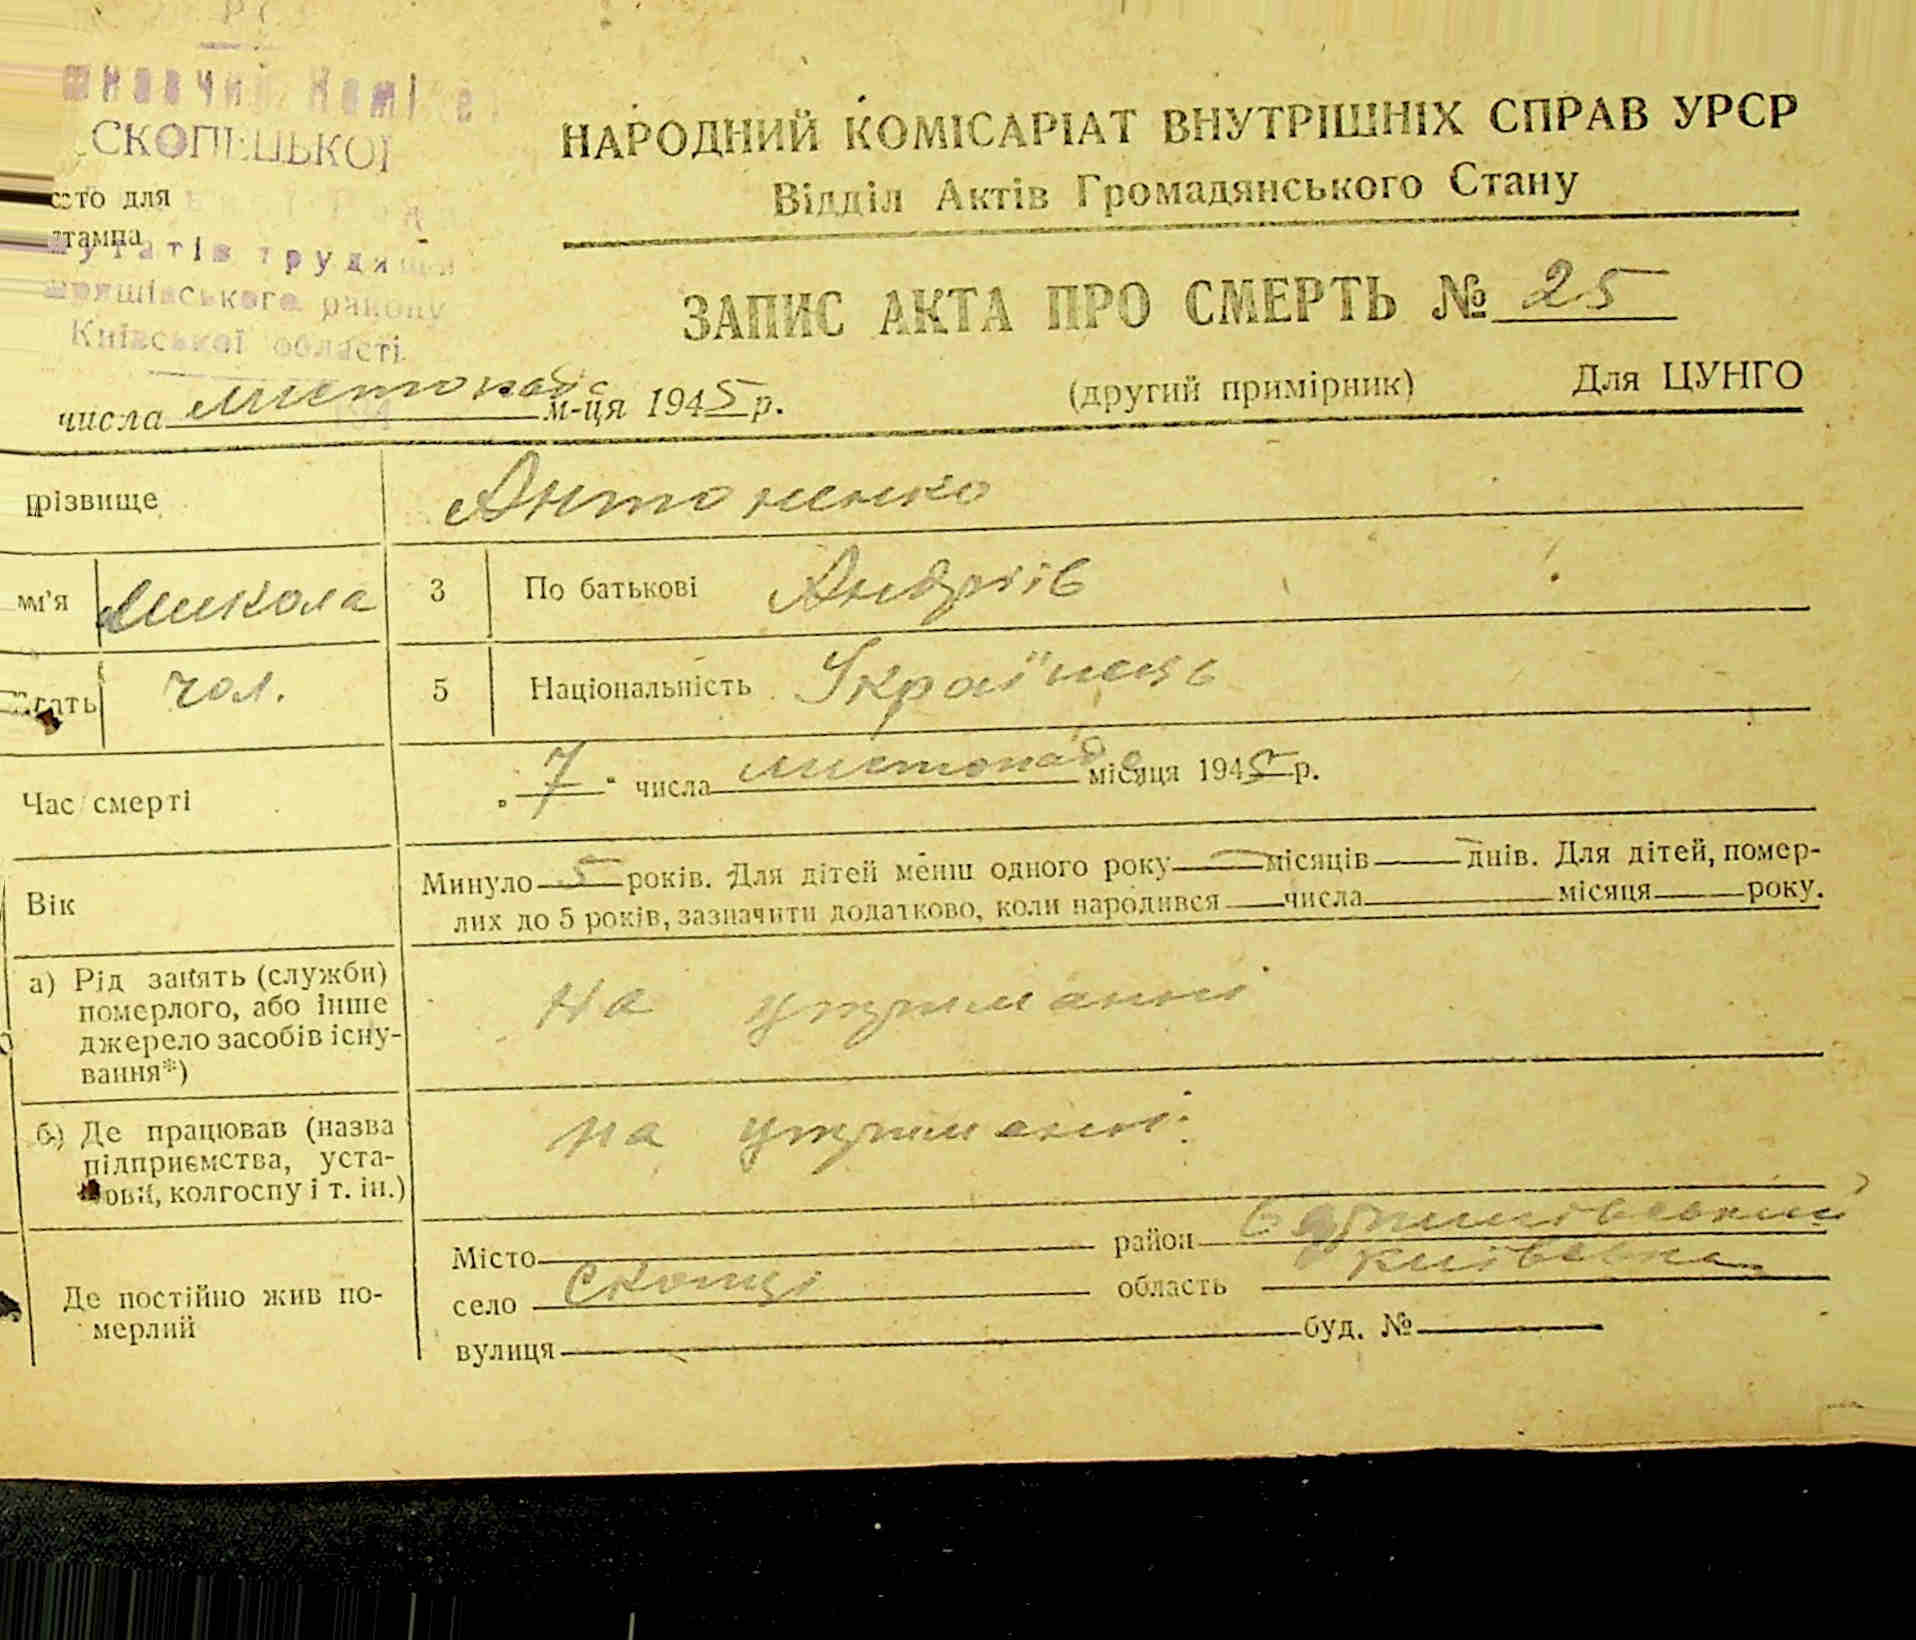 СКОПЕЦЬКОЇ
НАРОДНИЙ КОМІСАРІАТ ВНУТРІШНІХ СПРАВ УРСР
Відділ Актів Громадянського Стану
для
штампа
депутатів трудящих
району
Київської області
ЗАПИС АКТА ПРО СМЕРТЬ № 25
числа листопада м-ця 1945 р.
(другий примірник) Для ЦУНГО
прізвище Антоненко
м'я Микола 3 По батькові Андріїв
чол. 5 Національність Українець
Час смерті „7" числа листопада місяця 1945 р.
Вік Минуло 5 років. Для дітей менш одного року — місяців — днів. Для дітей, помер-
лих до 5 років, зазначити додатково, коли народився числа місяця року.
а) Рід занять (служби)
померлого, або інше
джерело засобів існу-
вання*)
на утриманні
б) Де працював (назва
підприємства, уста-
нови, колгоспу і т. ін.)
на утриманні
Де постійно жив по-
мерлий
Місто район
село Скопці область Київська
вулиця буд. №